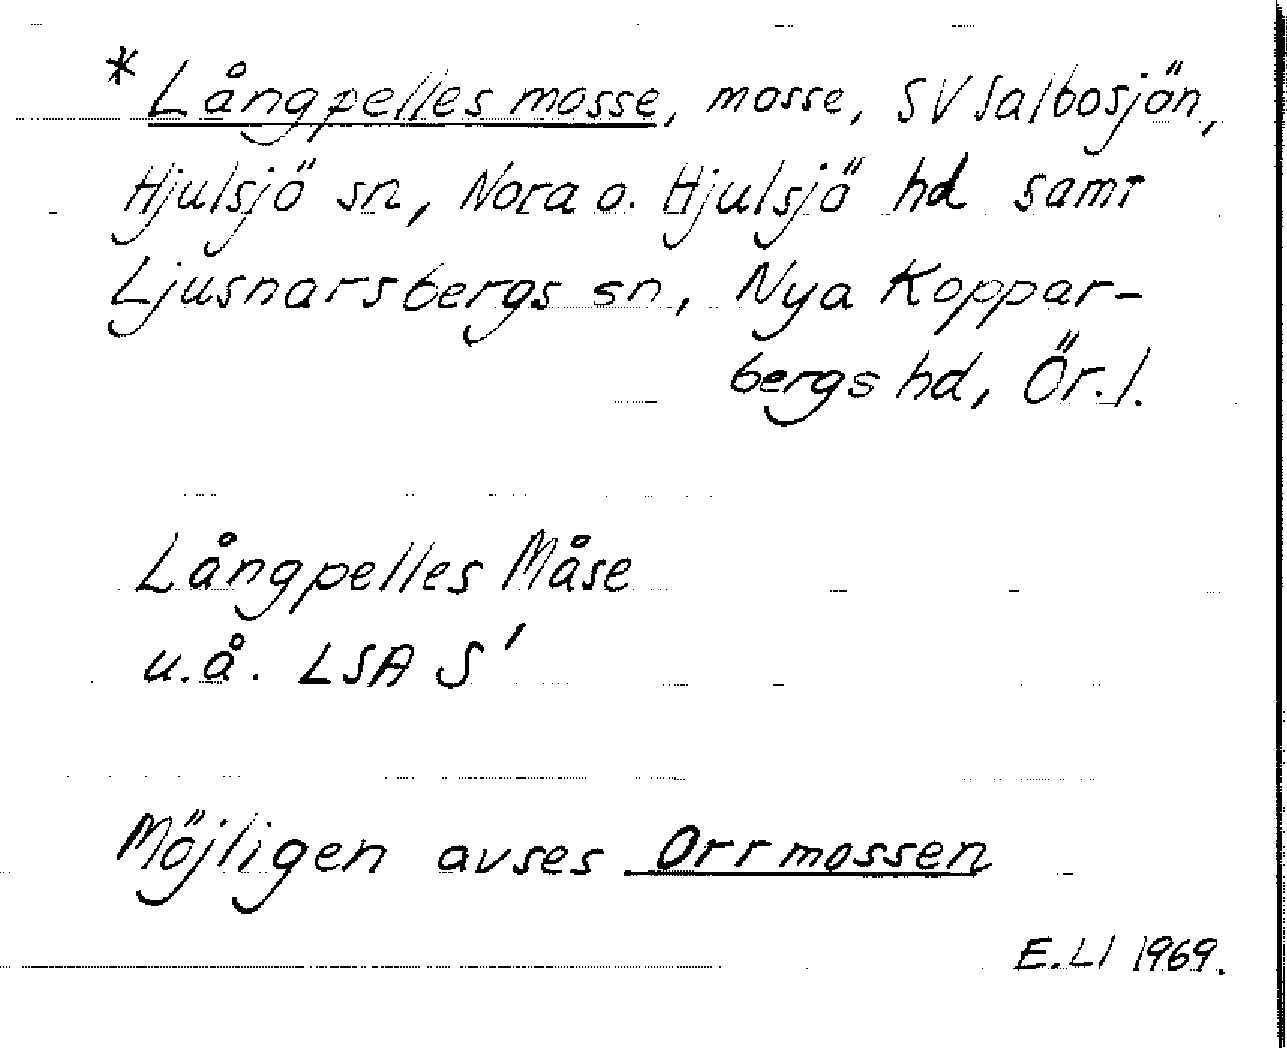 * Långpelles mosse, mosse, SV Salbosjön,
Hjulsjö sn, Nora o. Hjulsjö hd samt
Ljusnarsbergs sn, Nya Koppar-
bergs hd, Ör. l.
Långpelles Måse
u.å. LSA S'
Möjligen avses Orrmossen
E.LI 1969.